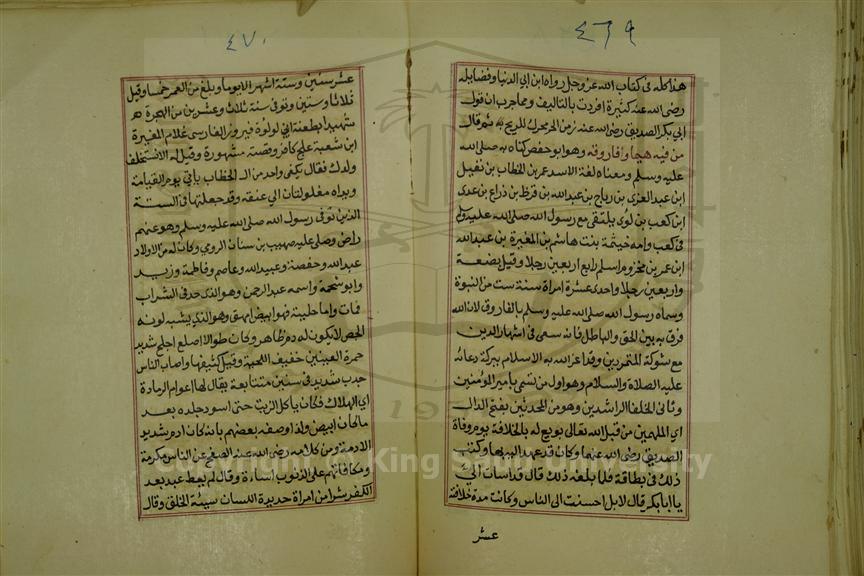 ٤٦٩
هذا كله في كتاب الله عز وجل رواه ابن ابي الدنيا وفضايله
رضى الله عنه كثيرة افردت بالتاليف ومما جرب ان قول
ابي بكر الصديق رضى الله عنه زمن الحر محرك للريح به ثم قال
من فيه هيجا وافاروقه وهو ابو حفص كناه به صلى الله
عليه وسلم ومعناه لغة الاسد عمر بن الخطاب بن نفيل
ابن عبد العزى بن رياح بن عبد الله بن قرظ بن رزاح بن عدى
ابن كعب بن لوى يلتقى مع رسول الله صلى الله عليه وسلم
في كعب وامه حيثمة بنت هاشم بن المغيرة بن عبد الله
ابن عمر بن مخزوم اسلم رابع اربعين رجلا وقيل بضعة
واربعين رجلا واحدى عشرة امراة سنة ست من النبوة
وسماه رسول الله صلى الله عليه وسلم بالفاروق لان الله
فرق به بين الحق والباطل فانه سعى في اشهار الدين
مع شوكة المتمردين وقد اعز الله به الاسلام ببركة دعائه
عليه الصلاة والسلام وهو اول من تسمى بامير المؤمنين
وثانى الخلفا الراشدين وهو من المحدثين بفتح الدال
اي الملهمين من قبل الله تعالى بويع له بالخلافة يوم وفاة
الصديق رضى الله عنهما وكان قد عهد اليه بها وكتب
ذلك في بطاقة فلما بلغه ذلك قال قد اسات الي
يا ابا بكر قال لا بل احسنت الى الناس وكانت مدة خلافته
عشر
٤٧٠
عشر سنين وستة اشهر الا يوما وبلغ من العمر خمسا وقيل
ثلاثا وستين وتوفى سنة ثلاث وعشرين من الهجرة
شهيدا بطعنة ابي لولوة فيروز الفارسى غلام المغيرة
ابن شعبة علج كافر وقصته مشهورة وقيل له الا تستخلف
ولدك فقال يكفى واحد من ال الخطاب ياتي يوم القيامة
ويداه مغلولتان الى عنقه وقد جعلتها في الستة
الذين توفى رسول الله صلى الله عليه وسلم وهو عنهم
راض وصلى عليه صهيب بن سنان الرومي وكان له من الاولاد
عبد الله وحفصة وعبيد الله وعاصم وفاطمة وزيد
وابو شحمة واسمه عبد الرحمن وهو الذى حد في الشراب
فمات واما حليته فهو ابيض امهق وهو الذي يشبه لونه
الجص لا يكون له دم ظاهر وكان طوالا اصلع اجلح شديد
حمرة العينين خفيف اللحية وقيل كثيفها واصاب الناس
جدب شديد في سنين متتابعة يقال لها اعوام الرمادة
اي الهلاك فكان ياكل الزيت حتى اسود جلده بعد
ما كان ابيض ولذا وصفه بعضهم بانه كان ادم شديد
الادمة ومن كلامه رضى الله عنه الصفح عن الناس مكرمة
ومكافاتهم على الذنوب اساءة وقال لم يعط عبد بعد
الكفر شرا من امراة حديدة اللسان سيئة الخلق وقال
Copyright © King Saud University